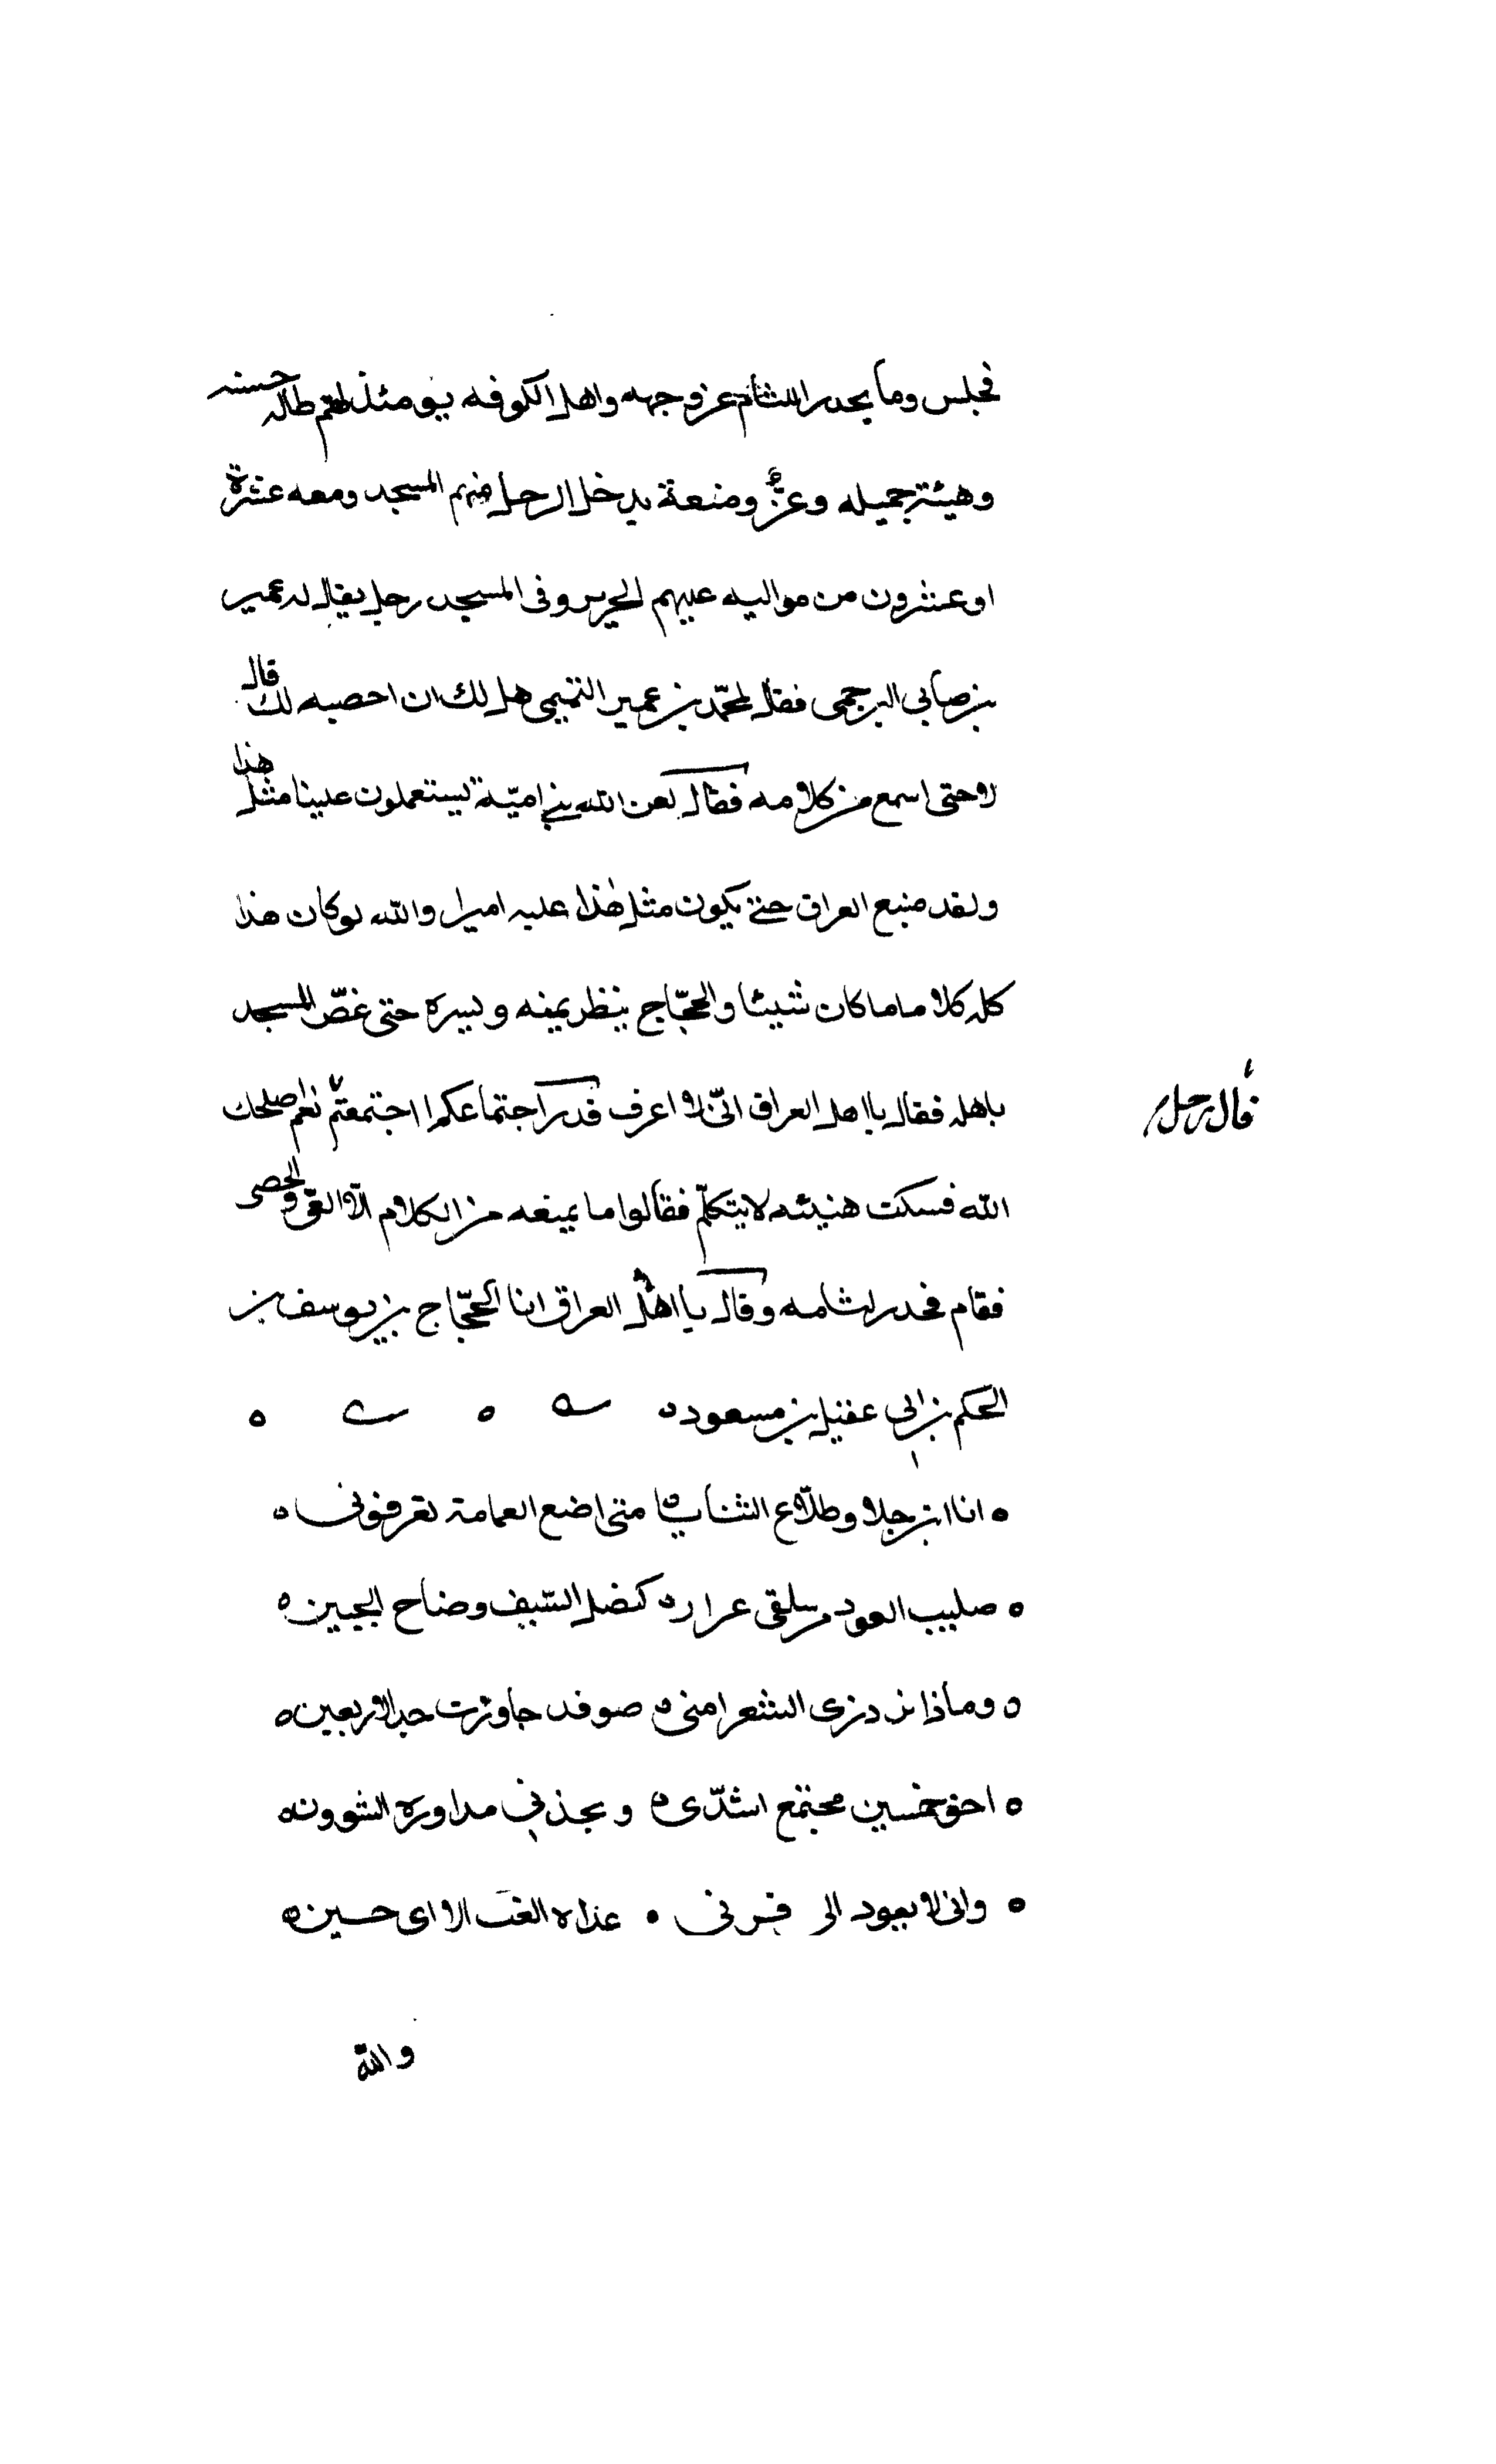 فجلس وما يحدر اللثام عن وجهه واهل الكوفه يومئذ لهم حاله حسنه
وهيئة جميله وعزٌّ ومنعة يدخل الرجل منهم المسجد ومعه عشرة
او عشرون من مواليه عليهم الحرير وفى المسجد رجل يقال له عمير
بن صابى البرجمى فقال لمحمّد بن عمير التميمى هل لك ان احصبه لك قال
لا حتى اسمع من كلامه فقال لعن الله بنى اميّة يستعملون علينا مثل هذا
ولقد ضيع العراق حتى يكون مثل هذا عليه اميرا والله لو كان هذا
كله كلاما ما كان شيئا والحجّاج ينظر يمنه ويسره حتى غصّ المسجد
باهله فقال يا اهل العراق انّى لا اعرف قدر اجتماعكم اجتمعتم نعم اصلحك
قال رجل
الله فسكت هنيئه لا يتكلّم فقالوا ما يمنعه من الكلام الّا العىّ والحصى
فقام فحدر لثامه وقال يا اهل العراق انا الحجّاج بن يوسف بن
الحكم بن ابى عقيل بن مسعود
انا ابن جلا وطلّاع الثنايا متى اضع العمامة تعرفونى
صليب العود من سلفى عرار كنصل السّيف وضاح الجبين
وماذا تدرى الشعرا منى وقد جاوزت حد الاربعين
اخو خمسين مجتمع اشدّى ونجذنى مداورة الشوون
وانى لا يعود الى قرنى غداه الغب الا اى حين
والله